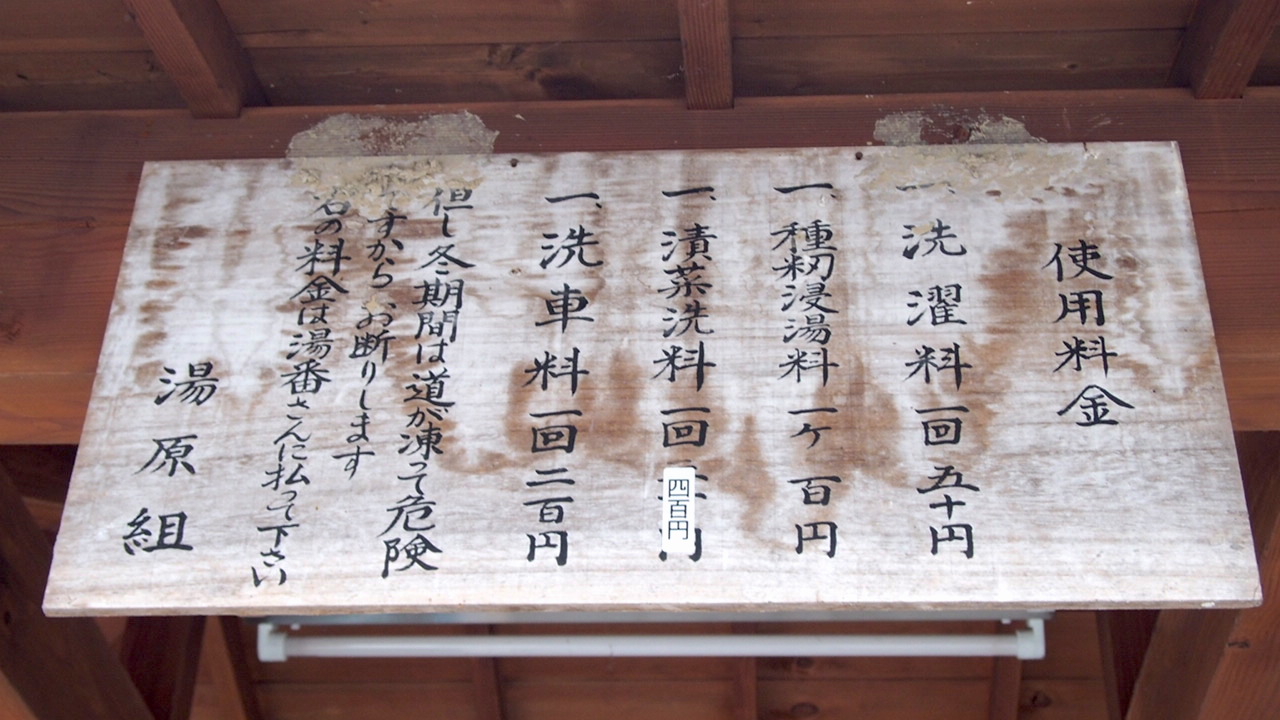 使用料金
一、洗濯料一回五十円
一、種籾浸湯料一ヶ百円
一、漬菜洗料一回 四百円 円
一、洗車料一回二百円
但し冬期間は道が凍って危険
ですからお断りします
右の料金は湯番さんに払って下さい
湯原組